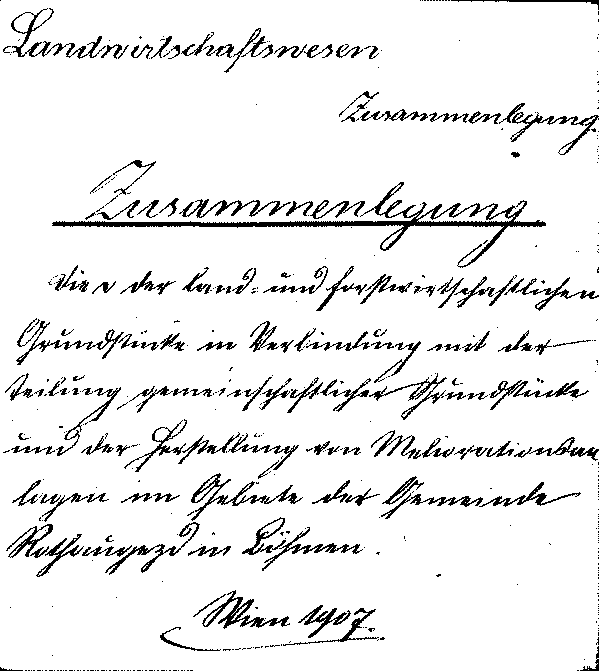 Landwirtschaftswesen
Zusammenlegung.
Zusammenlegung.
Die ~ der land- und forstwirtschaftlichen
Grundstücke in Verbindung mit der
Teilung gemeinschaftlicher Grundstücke
und der Herstellung von Meliorationsan
lagen im Gebiete der Gemeinde
Rothaugezd in Böhmen.
Wien 1907.